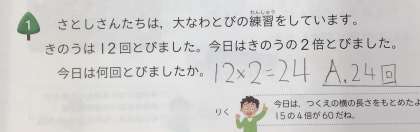 1 さとしさんたちは，大なわとびの練習をしています。
れんしゅう
きのうは12回とびました。今日はきのうの2倍とびました。
今日は何回とびましたか。 12×2=24 A.24回
りく
今日は，つくえの横の長さをもとめたよ
15の4倍が60だね。